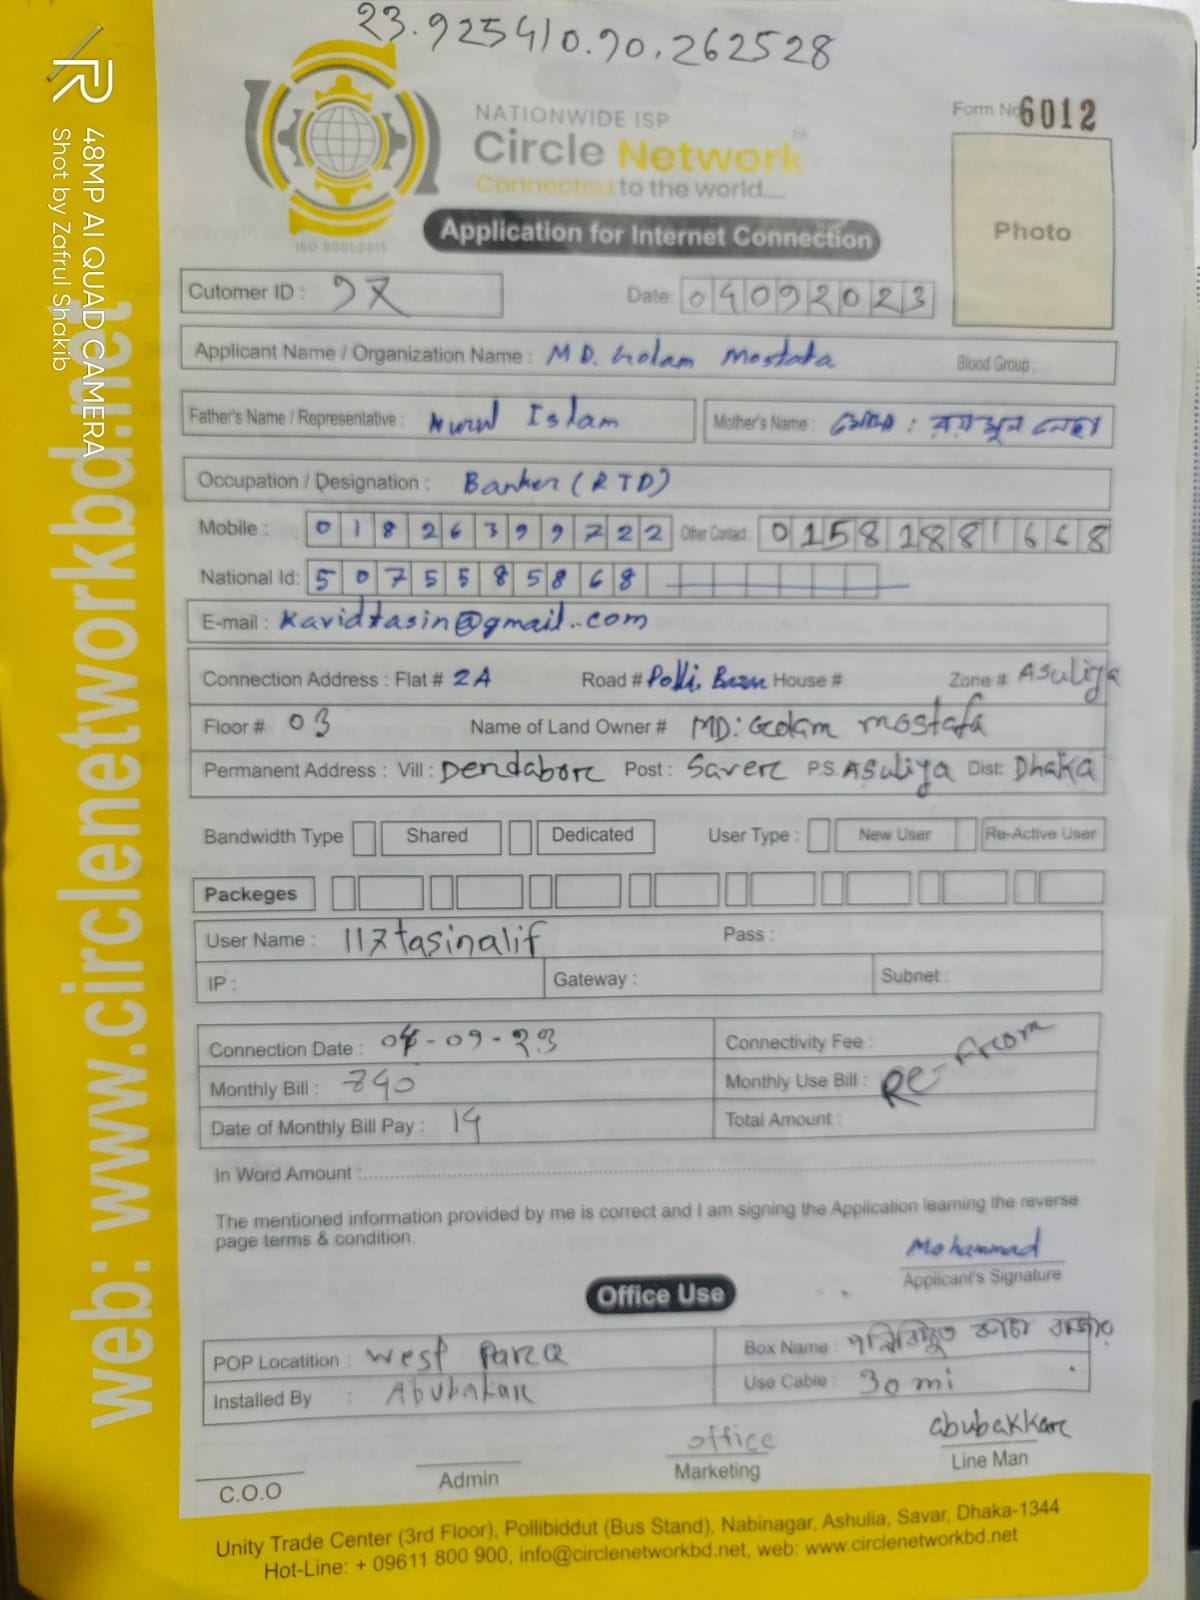 23.925410.90.262528
NATIONWIDE ISP
Circle Network
Connected to the world....
ISO 9001:2015
Form No 6012
Photo
Application for Internet Connection
Cutomer ID : 97
Date: 04092023
Applicant Name / Organization Name : MD. Golam Mostafa Blood Group :
Father's Name / Representative : Nurul Islam Mother's Name :
Occupation / Designation : Banker (RTD)
Mobile : 01826399722 Other Contact : 01581881668
National Id: 5075585868
E-mail : Kavidtasin@gmail.com
Connection Address : Flat # 2A Road # Polli House # Zone # Asuliya
Floor # 03 Name of Land Owner # MD: Golam mostafa
Permanent Address : Vill : Dendabor Post : Saver P.S. Asuliya Dist: Dhaka
Bandwidth Type Shared Dedicated User Type : New User Re-Active User
Packeges
User Name : 117tasinalif Pass :
IP : Gateway : Subnet :
Connection Date : 04-09-23 Connectivity Fee :
Monthly Bill : 840 Monthly Use Bill : Re-From
Date of Monthly Bill Pay : 14 Total Amount :
In Word Amount :
The mentioned information provided by me is correct and I am signing the Application learning the reverse
page terms & condition.
Mohammad
Applicant's Signature
Office Use
POP Locatition : West Para Box Name :
Installed By : Abubakar Use Cable : 30 mi
office abubakkar
C.O.O Admin Marketing Line Man
Unity Trade Center (3rd Floor), Pollibiddut (Bus Stand), Nabinagar, Ashulia, Savar, Dhaka-1344
Hot-Line: + 09611 800 900, info@circlenetworkbd.net, web: www.circlenetworkbd.net
web: www.circlenetworkbd.net
48MP AI QUAD CAMERA
Shot by Zafrul Shakib